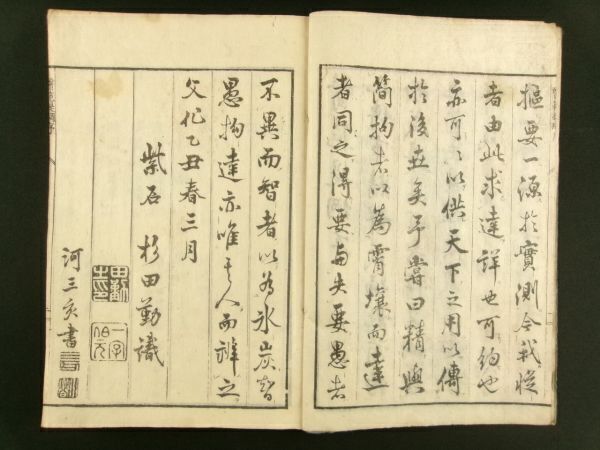 樞要一源於實測今我從
者由此求達詳也可約也
亦可以供天下之用以傳
於後世矣予嘗曰精與
簡拘者以為霄壤而達
者同之得要与失要愚者
不異而智者以為氷炭智
愚拘達亦唯其人而群之
文化乙丑春三月
紫石 杉田勤識
河三亥書